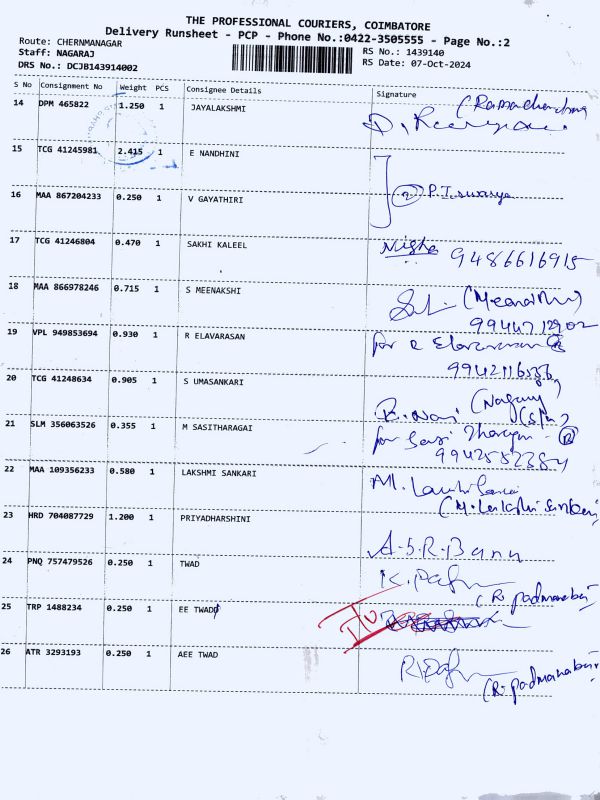 THE PROFESSIONAL COURIERS, COIMBATORE
Delivery Runsheet - PCP - Phone No.:0422-3505555 - Page No.:2
Route: CHERNMANAGAR
Staff: NAGARAJ
DRS No.: DCJB143914002
RS No.: 1439140
RS Date: 07-Oct-2024
S No Consignment No Weight PCS Consignee Details Signature
14 DPM 465822 1.250 1 JAYALAKSHMI
15 TCG 41245981 2.415 1 E NANDHINI
16 MAA 867204233 0.250 1 V GAYATHIRI
17 TCG 41246804 0.470 1 SAKHI KALEEL 9486616915
18 MAA 866978246 0.715 1 S MEENAKSHI
19 VPL 949853694 0.930 1 R ELAVARASAN
20 TCG 41248634 0.905 1 S UMASANKARI
21 SLM 356063526 0.355 1 M SASITHARAGAI
22 MAA 109356233 0.580 1 LAKSHMI SANKARI
23 HRD 704087729 1.200 1 PRIYADHARSHINI A.S.R.Banu
24 PNQ 757479526 0.250 1 TWAD
(R. padmanaban
25 TRP 1488234 0.250 1 EE TWAD
26 ATR 3293193 0.250 1 AEE TWAD
(R. padmanaban